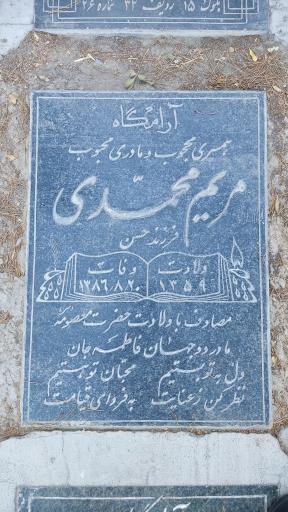 بلوک ۱۵ ردیف ۴۲ شماره ۲۶
آرامگاه
همسری محبوب و مادری محبوب
مریم محمدی
فرزند حسن
ولادت وفات
۱۳۵۹ ۱۳۸۶،۸،۲۰
مصادف با ولادت حضرت معصومه
مادر دو جهان فاطمه جان
دل به تو بستیم محبان تو هستیم
نظر کن ز عنایت به فردای قیامت
آرامگاه